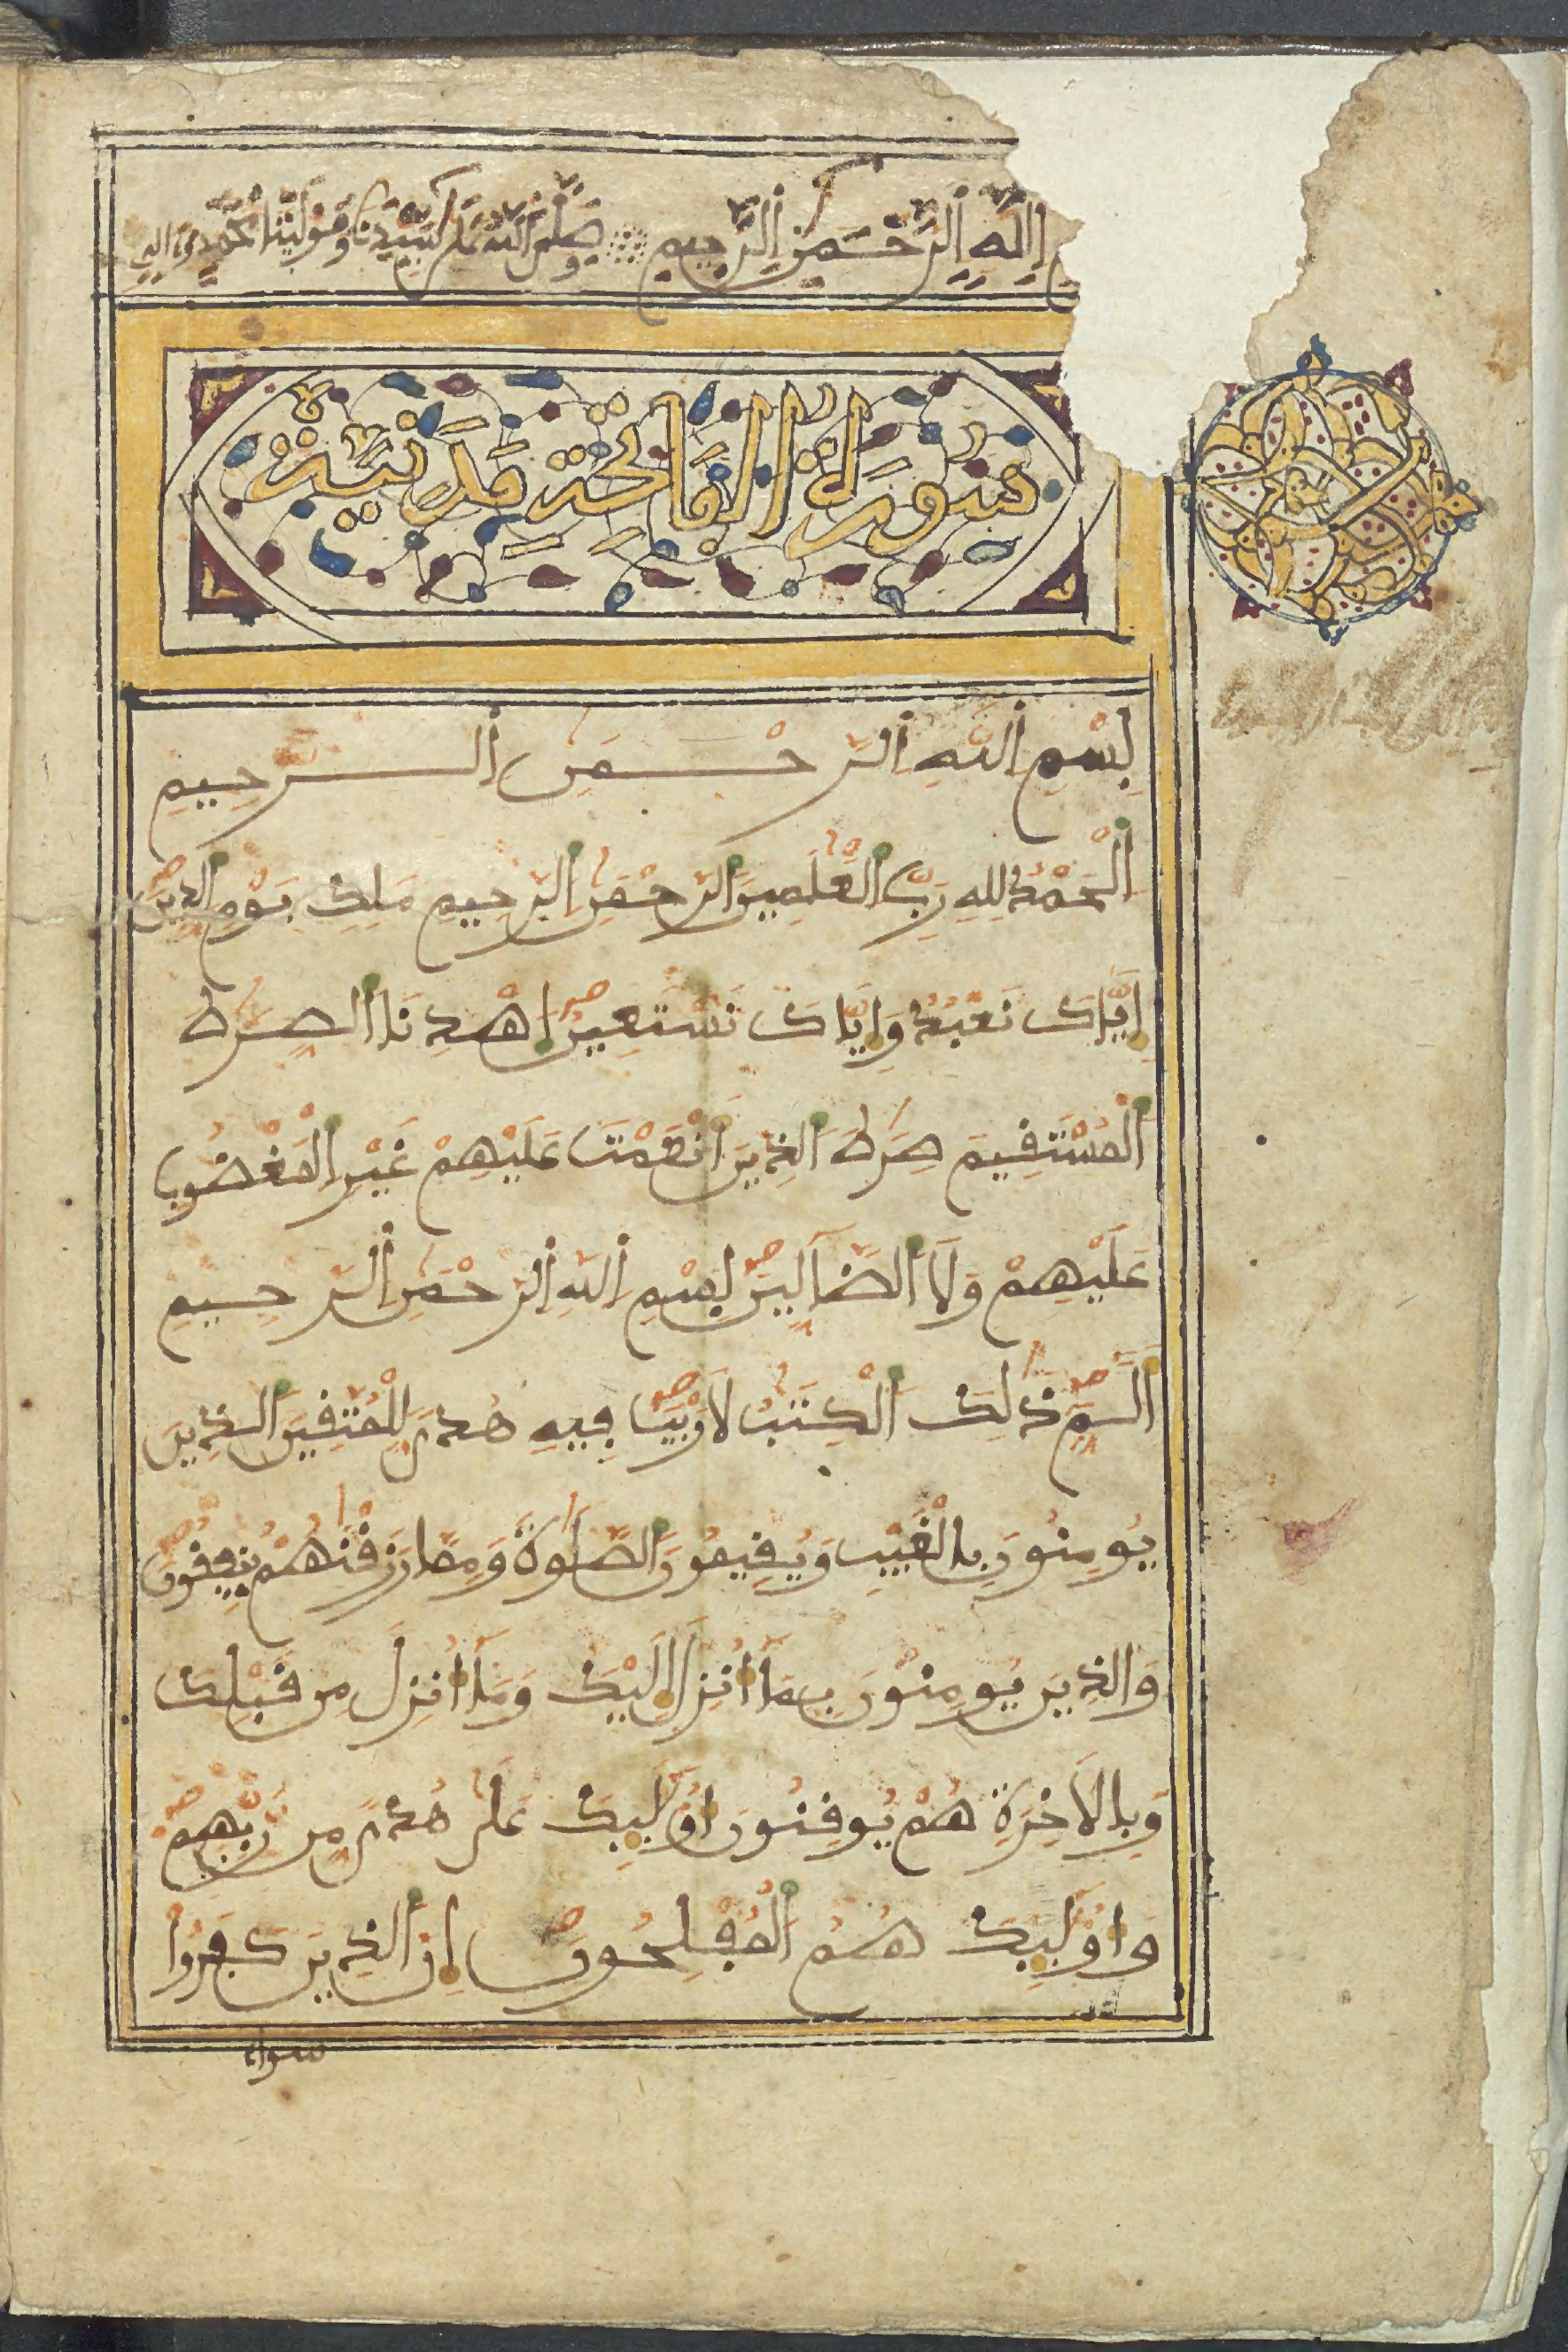 اللَّهِ الرَّحْمَنِ الرَّحِيمِ وَصَلَّى اللَّهُ عَلَى سَيِّدِنَا وَمَوْلَيْنَا مُحَمَّدٍ
سُورَةُ الْفَاتِحَةِ مَدَنِيَّةٌ
بِسْمِ اللَّهِ الرَّحْمَنِ الرَّحِيمِ
الْحَمْدُ لِلهِ رَبِّ الْعَلَمِينَ الرَّحْمَنِ الرَّحِيمِ مَلِكِ يَوْمِ الدِّينِ
إِيَّاكَ نَعْبُدُ وَإِيَّاكَ نَسْتَعِينُ اهْدِنَا الصِّرَطَ
الْمُسْتَقِيمَ صِرَطَ الذِينَ أَنْعَمْتَ عَلَيْهِمْ غَيْرِ الْمَغْضُوبِ
عَلَيْهِمْ وَلَا الضَّآلِّينَ بِسْمِ اللَّهِ الرَّحْمَنِ الرَّحِيمِ
أَلَمِّ ذَلِكَ الْكِتَبُ لَا رَيْبَ فِيهِ هُدًى لِلْمُتَّقِينَ الذِينَ
يُومِنُونَ بِالْغَيْبِ وَيُقِيمُونَ الصَّلَوةَ وَمِمَّا رَزَقْنَهُمْ يُنفِقُونَ
وَالذِينَ يُومِنُونَ بِمَا أُنزِلَ إِلَيْكَ وَمَا أُنزِلَ مِن قَبْلِكَ
وَبِالَاخِرَةِ هُمْ يُوقِنُونَ أُوْلَئِكَ عَلَى هُدًى مِّن رَّبِّهِمْ
وَأُوْلَئِكَ هُمُ الْمُفْلِحُونَ إِنَّ الذِينَ كَفَرُوا
سواء